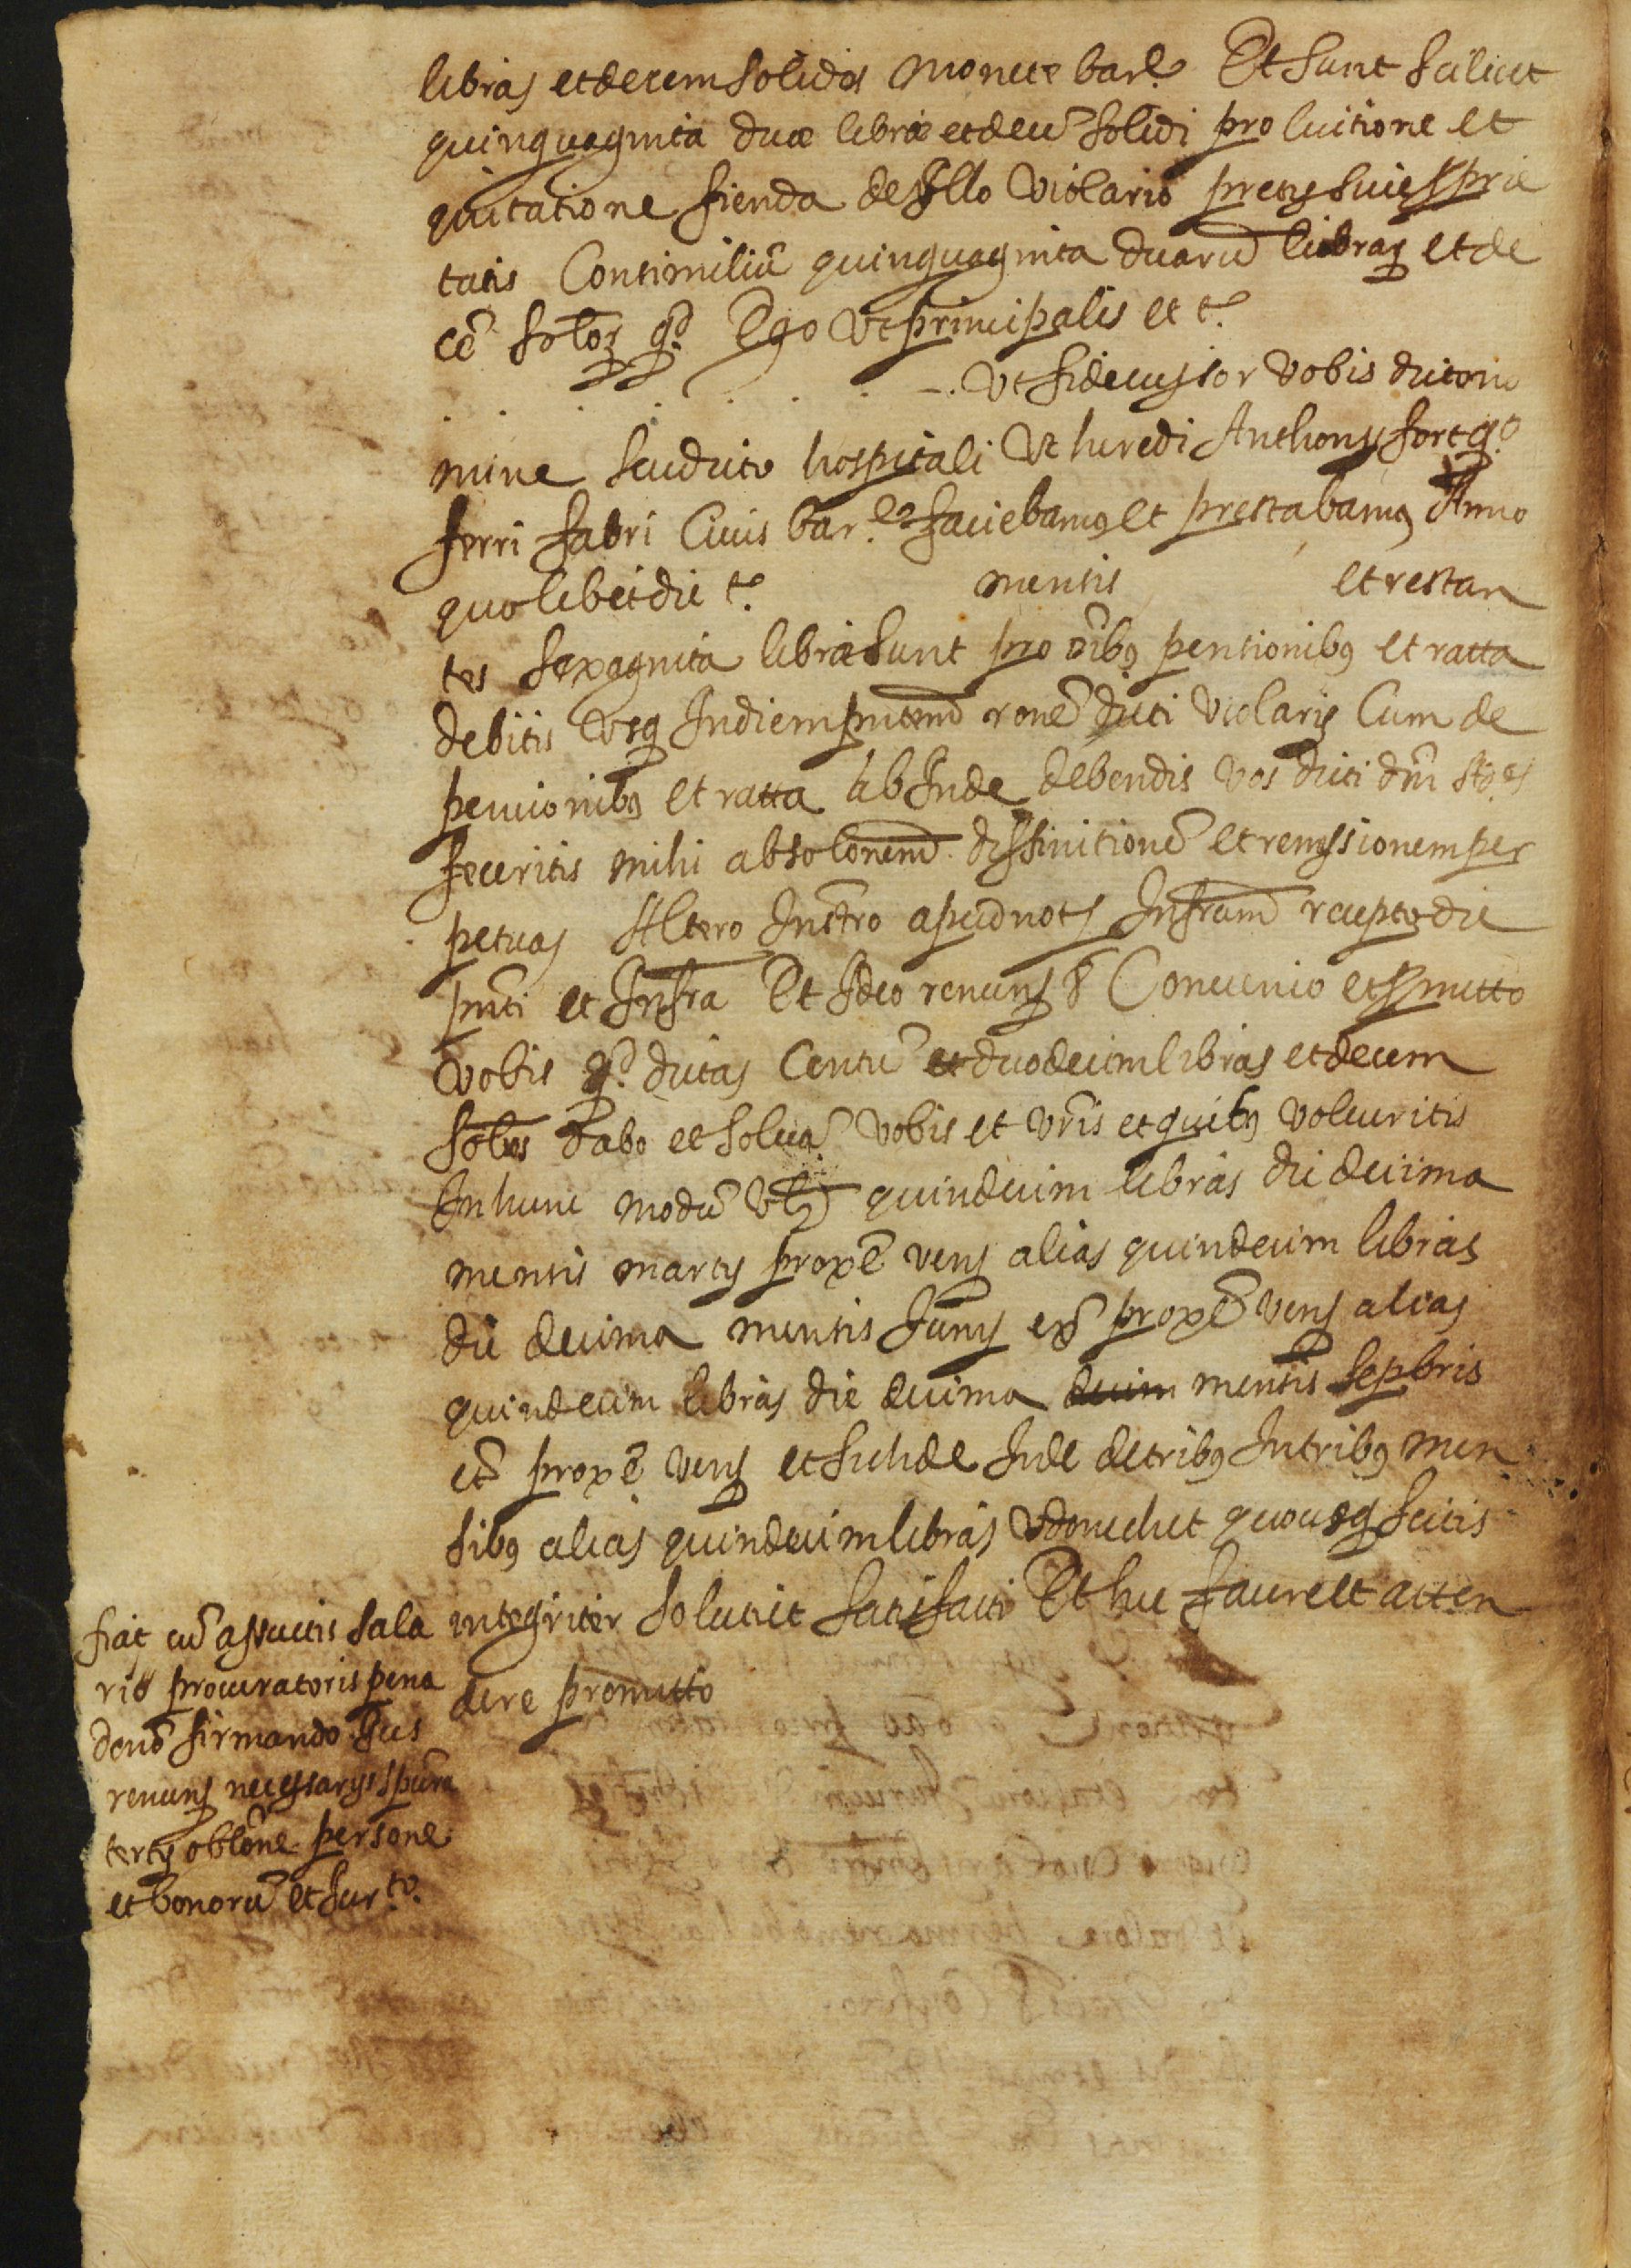 libras et decem solidos monete barᵉ Et sunt scilicet
quinquaginta duæ libræ et decē solidi pro luitione et
quitatione fienda de Illo violario pretij sui espriæ
tatis Consimiliū quinquaginta duarū librarꝫ et de
cē solorꝫ qᵈ Ego ut principalis et tᵉ
ut fidecussor vobis dicto no
mine seu dicto hospitali ut heredi Anthonij fort qᵒ
ferri fabri Civis barᵉ faciebamꝰ et prestabamꝰ Anno
quolibet die tᵉ mensis et restan
tes sexaginta libræ sunt pro oībꝰ pentionibꝰ et ratta
debitis usqꝫ In diem pntem rone dicti violarij Cum de
pencionibꝰ et ratta ab Inde debendis vos dicti dnī
feceritis mihi absolonem diffinitionē et remissionem per
petuas Altero Instro apud notꝫ Infrum recepto die
pnti et Infra Et Ideo renunꝫ & Convenio et promitto
vobis qᵈ dictas Centū et duodecim libras et decem
solos dabo et solvā vobis et vris et quibꝰ volueritis
In hunc modū vlꝫ quindecim libras die decima
mensis martij proxē venꝫ alias quindecim libras
die decima mensis Junij ex proxē venꝫ alias
quindecim libras die decima decim mensis sepbris
etᵈ proxē venꝫ et sic de Inde de tribꝰ In tribꝰ men
sibꝰ alias quindecim libras donechet quousqꝫ scitis
integriter solutis et satisfacti Et hec facere et atten
dere promitto
fiat cū assuetis sala
rio procuratoris pena
denō firmando Jus
renunꝫ necessarijs spūre
tertij oblōne persone
et bonorū et Jur.ᵗᵒ